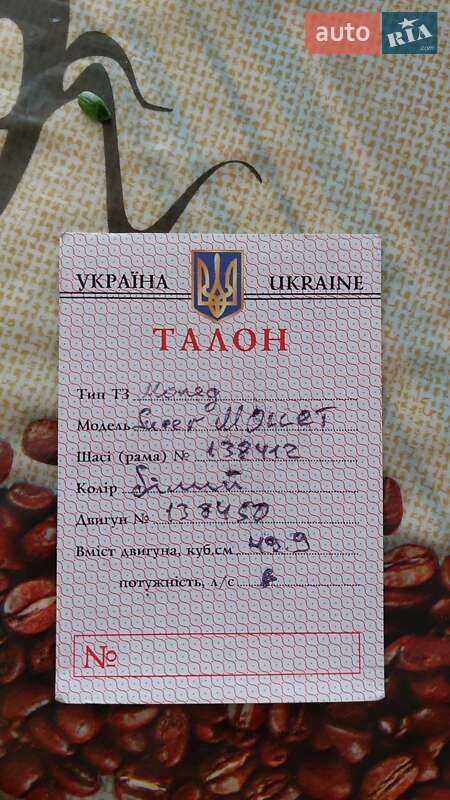 auto RIA .com
УКРАЇНА UKRAINE
ТАЛОН
Тип ТЗ Мопед
Модель
Шасі (рама) № 138412
Колір білий
Двигун № 138450
Вміст двигуна, куб.см 49.9
потужність, л/с
№